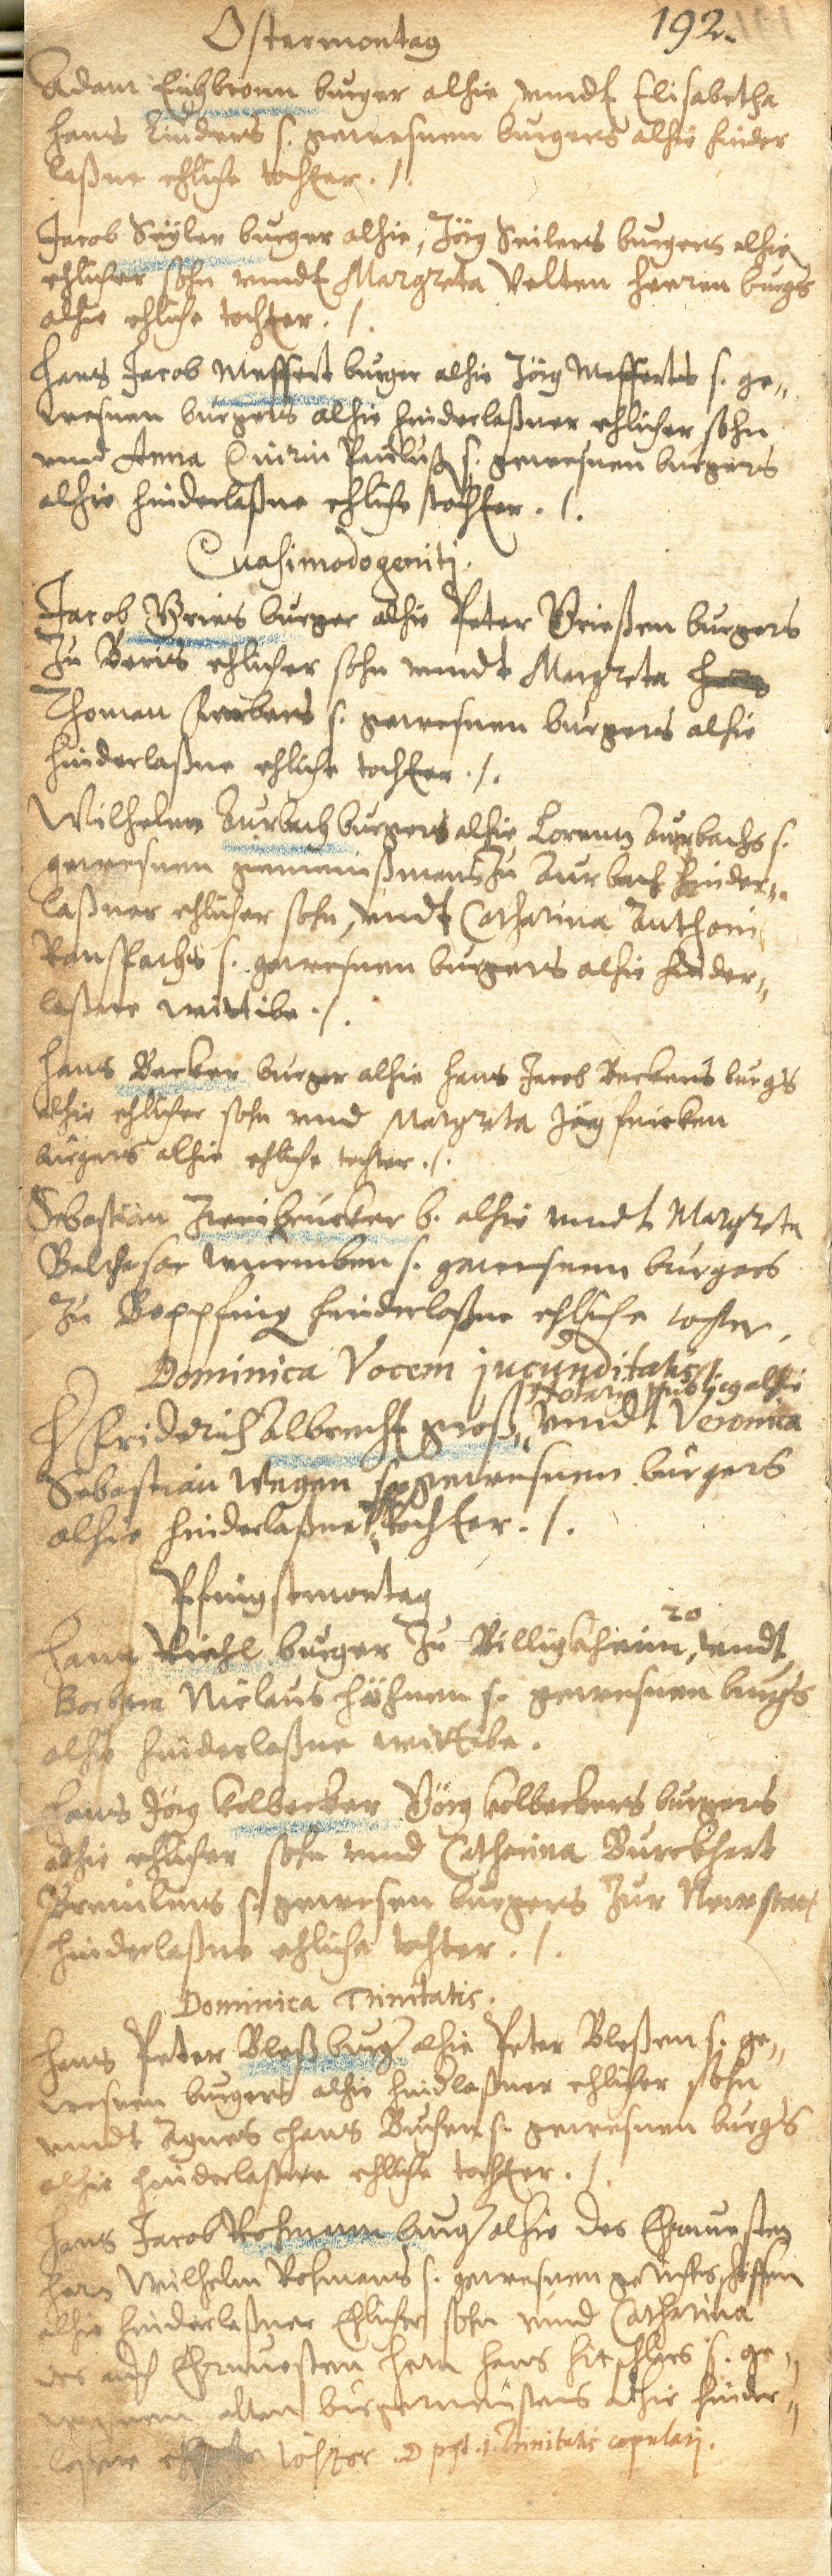 192.
Ostermontag
Adam Eichbronn burger alhie vundt Elisabetha
Hans Linders s. gewesnen burgers alhie hinder
laßne ehliche tochter ./.
Jacob Seyler burger alhie, Jörg Seilers burgers alhie
ehlicher sohn vundt Margreta Velten Herren burgers
alhie ehliche tochter ./.
Hans Jacob Meffert burger alhie Jörg Mefferts s. ge„
wesnen burgers alhie hinderlaßner ehlicher sohn
vnnd Anna Quirin Pauluß s. gewesnen burgers
alhie hinderlaßne ehliche tochter ./.
Quasimodogeniti.
Jacob Gries burger alhie Peter Grießen burgers
zu ehlicher sohn vnndt Margreta
Thoman s. gewesnen burgers alhie
hinderlaßne ehliche tochter ./.
Wilhelm Aurbach burgers alhie Lorentz Aurbachs s.
gewesnen gemeinßmans zu Aurbach hinder„
laßner ehlicher sohn, vndt Catharina Anthoni
s. gewesnen burgers alhie hinder„
laßne wittibe ./.
Hans Becker burger alhie Hans Jacob Beckers burgers
alhie ehlicher sohn vnd Margreta Jörg
burgers alhie ehliche tochter ./.
Sebastian Zweibrucker b. alhie vnndt Margreta
Balthasar s. gewesnen burgers
zu Bopfing hinderlaßne ehliche tochter.
Dominica Vocem jucunditatis.
Notarius publicus alhie
H Friderich Albrecht groß„ vnndt Veronica
Sebastian Wegen s. gewesnen burgers
alhie hinderlaßne tochter ./.
Pfingstmontag
20
Hans Riehl burger zu Billigkheim, vndt
Barbara Niclaus Höhnen s. gewesnen burgers
alhie hinderlaßne wittibe.
Hans Jörg Kolbecker Görg Kolbeckers burgers
alhie ehlicher sohn vnnd Catharina Burckhart
s. gewesen burgers zur Newstatt
hinderlaßne ehliche tochter ./.
Dominica Trinitatis.
Hans Peter Bleß burger alhie Peter Bleßen s. ge„
wesnen burgers alhie hindlaßner ehlicher sohn
vnndt Agnes Hans s. gewesnen burgers
alhie hinderlaßne ehliche tochter ./.
Hans Jacob Kohmann burger alhie des Ehrnuesten
Hern Wilhelm Kohmans s. gewesnen gerichts schöffen
alhie hinderlaßner Ehlicher sohn vnnd Catharina
des auch Ehrnuesten Hern Hans s. ge„
wesnen alten burgermeisters alhie hinder„
laßne ehliche tochter. D post .1. Trinitatis copulati.